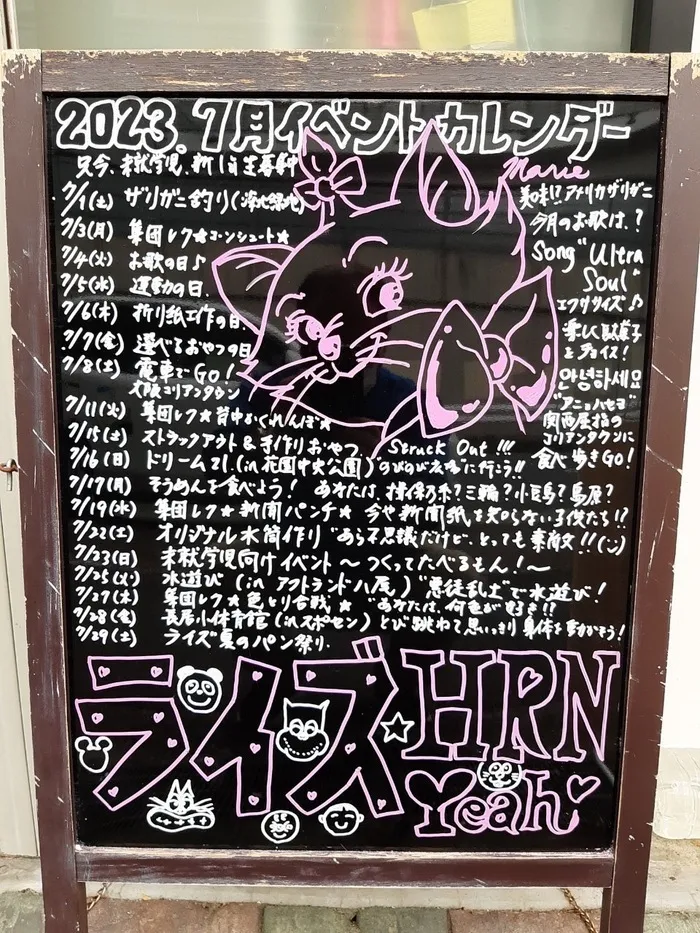 2023. 7月イベントカレンダー
只今、未就学児、新1年生募集中
Marie
7/1(土) ザリガニ釣り 美味!?アメリカザリガニ
7/3(月) 集団レク★コーンシュート★ 今月のお歌は、?
7/4(火) お歌の日♪ Song "Ultra Soul"
7/5(水) 運動の日. エクササイズ♪
7/6(木) 折り紙工作の日 楽しく駄菓子
7/7(金) 選べるおやつの日 をチョイス!
7/8(土) 電車でGO! 안녕하세요
大阪コリアンタウン "アニョハセヨ"
関西屈指の
コリアンタウンに
食べ歩きGO!
7/11(火) 集団レク★背中かくれんぼ★
7/15(土) ストラックアウト&手作りおやつ. Struck Out!!!
7/16(日) ドリーム21.(in 花園中央公園)"のびのび広場"に行こう!!
7/17(月) そうめんを食べよう! あなたは、揖保乃糸?三輪?小豆島?島原?
7/19(水) 集団レク★新聞パンチ★ 今や新聞紙を知らない子供たち!?
7/22(土) オリジナル水筒作り "あら不思議だけど、とっても素敵!!
7/23(日) 未就学児向けイベント ~つくってたべるもん!~
7/25(火) 水遊び (in アクトランド八尾) "悪徒乱土"で水遊び!
7/27(木) 集団レク★色とり合戦★ "あなたは、何色が好き!?
7/28(金) 長居小体育館(inスポセン) とび跳ねて思いっきり身体を動かそう!
7/29(土) ライズ夏のパン祭り.
ライズ HRN
Yeah